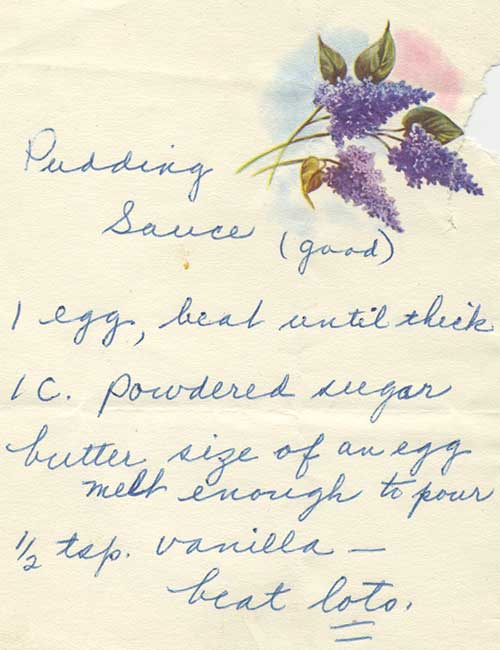 Pudding
Sauce (good)
1 egg, beat until thick
1 C. powdered sugar
butter size of an egg
melt enough to pour
1/2 tsp. vanilla —
beat lots.